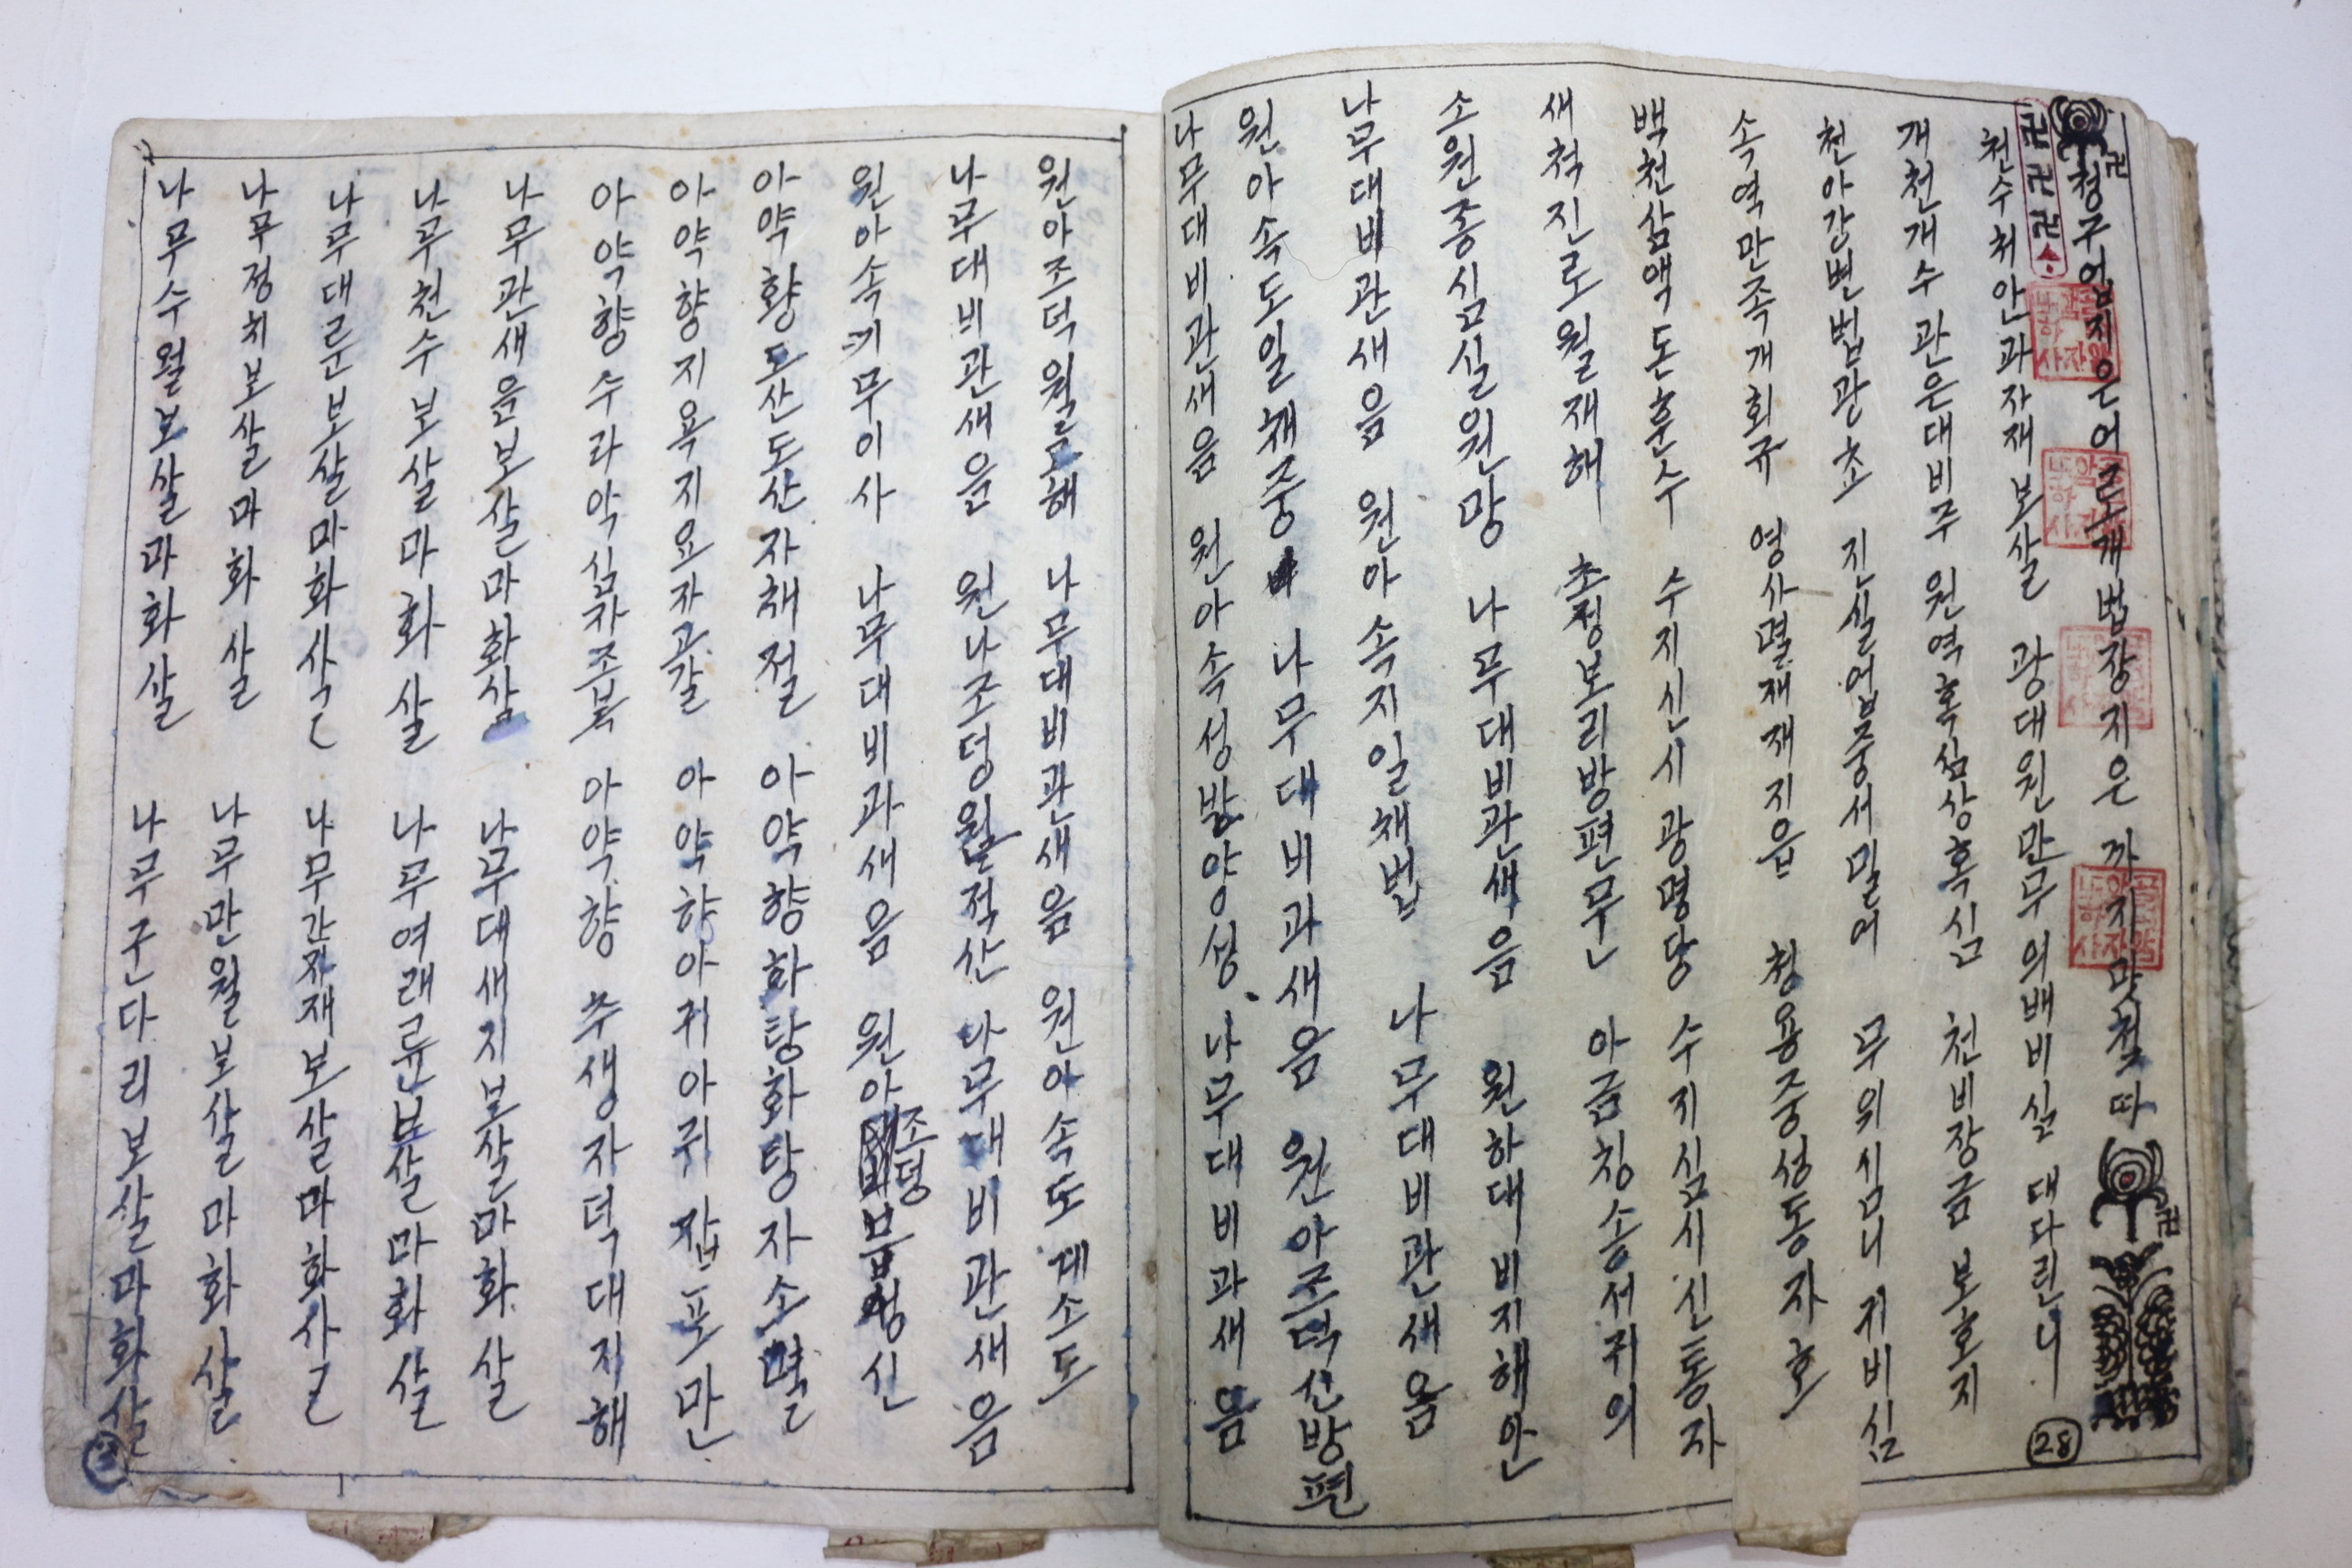 卍 卍 卍
청구업지은어로개법장지은 까지맟첫따
천수처안과자재보살 광대원만무의배비심 대다린니
개천개수관은대비주 원역혹심상혹심 천비장금보호지
천아간변법관초 진실어부중서밀어 무위심니귀비심
속역만족개회규 영사멸재재지읍 청용중성동자호
백천삼액돈훈수 수지신시광명당 수지심시신통자
새척진로월재해 초정보리방편무 아금칭송서귀의
소원종심실원망 나무대비관새음 원하대비지해안
나무대비관새음 원아속지일채법 나무대비관새음
원아속도일채중 나무대비과새음 원아조덕선방편
나무대비과새음 원아속성발양성 나무대비과새음
28
원아조덕월고해 나무대비관새음 원아속도게소도
나무대비관새음 원나조덩월적산 나무대비관새음
원아속기무이사 나무대비과새음 원아조덩 신
아약향도산도산자채절 아약향화탕화탕자소멸
아약향지욕지요자고갈 아약향아귀아귀잡포만
아약향수라악심자조복 아약향 수생자덕대지해
나무관새음보살마화살 나무대새지보살마화살
나무천수보살마화살 나무여래륜보살마화살
나무대룬보살마화살 나무간자재보살마화사
나무정취보살마화살 나무만월보살마화살
나무수월보살마화살 나무군다리보살마화살